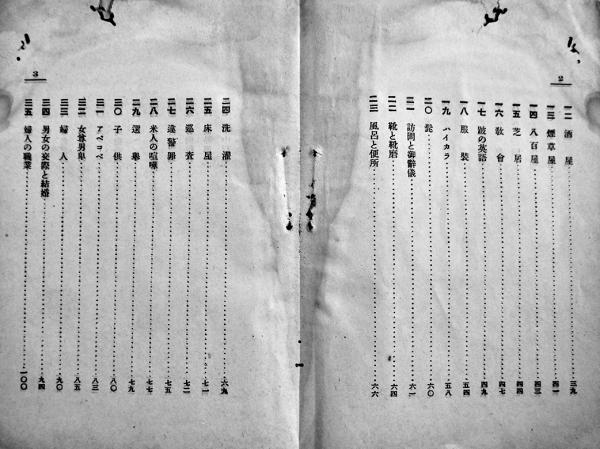 2
一二 酒屋 三九
一三 煙草屋 四一
一四 八百屋 四三
一五 芝居 四四
一六 敎會 四七
一七 跛の英語 四九
一八 服裝 五四
一九 ハイカラ 五八
二〇 髭 六〇
二一 訪問と御辭儀 六一
二二 靴と靴磨 六四
二三 風呂と便所 六六
3
二四 洗濯 六九
二五 床屋 七一
二六 巡査 七二
二七 違警罪 七五
二八 米人の喧嘩 七七
二九 選擧 七九
三〇 子供 八〇
三一 アベコベ 八三
三二 女尊男卑 八五
三三 婦人 九〇
三四 男女の交際と結婚 九四
三五 婦人の職業 一〇〇